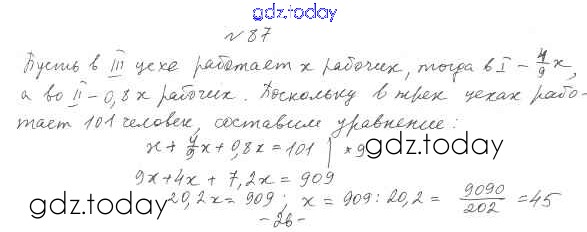 gdz.today
№ 87
Пусть в III цехе работает x рабочих, тогда в I - 4/9 x,
а во II - 0,8x рабочих. Поскольку в трех цехах рабо-
тает 101 человек, составим уравнение:
x + 4/9 x + 0,8x = 101 | * 9
gdz.today
9x + 4x + 7,2x = 909
gdz.today
20,2x = 909; x = 909 : 20,2 = 9090/202 = 45
- 26 -
gdz.today